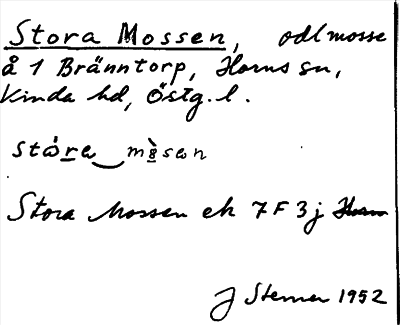 Stora Mossen, odl mosse
å 1 Bränntorp, Horns sn,
Kinda hd, Östg. l.
Stora Mossen ek 7F3j Horn
J Sterner 1952